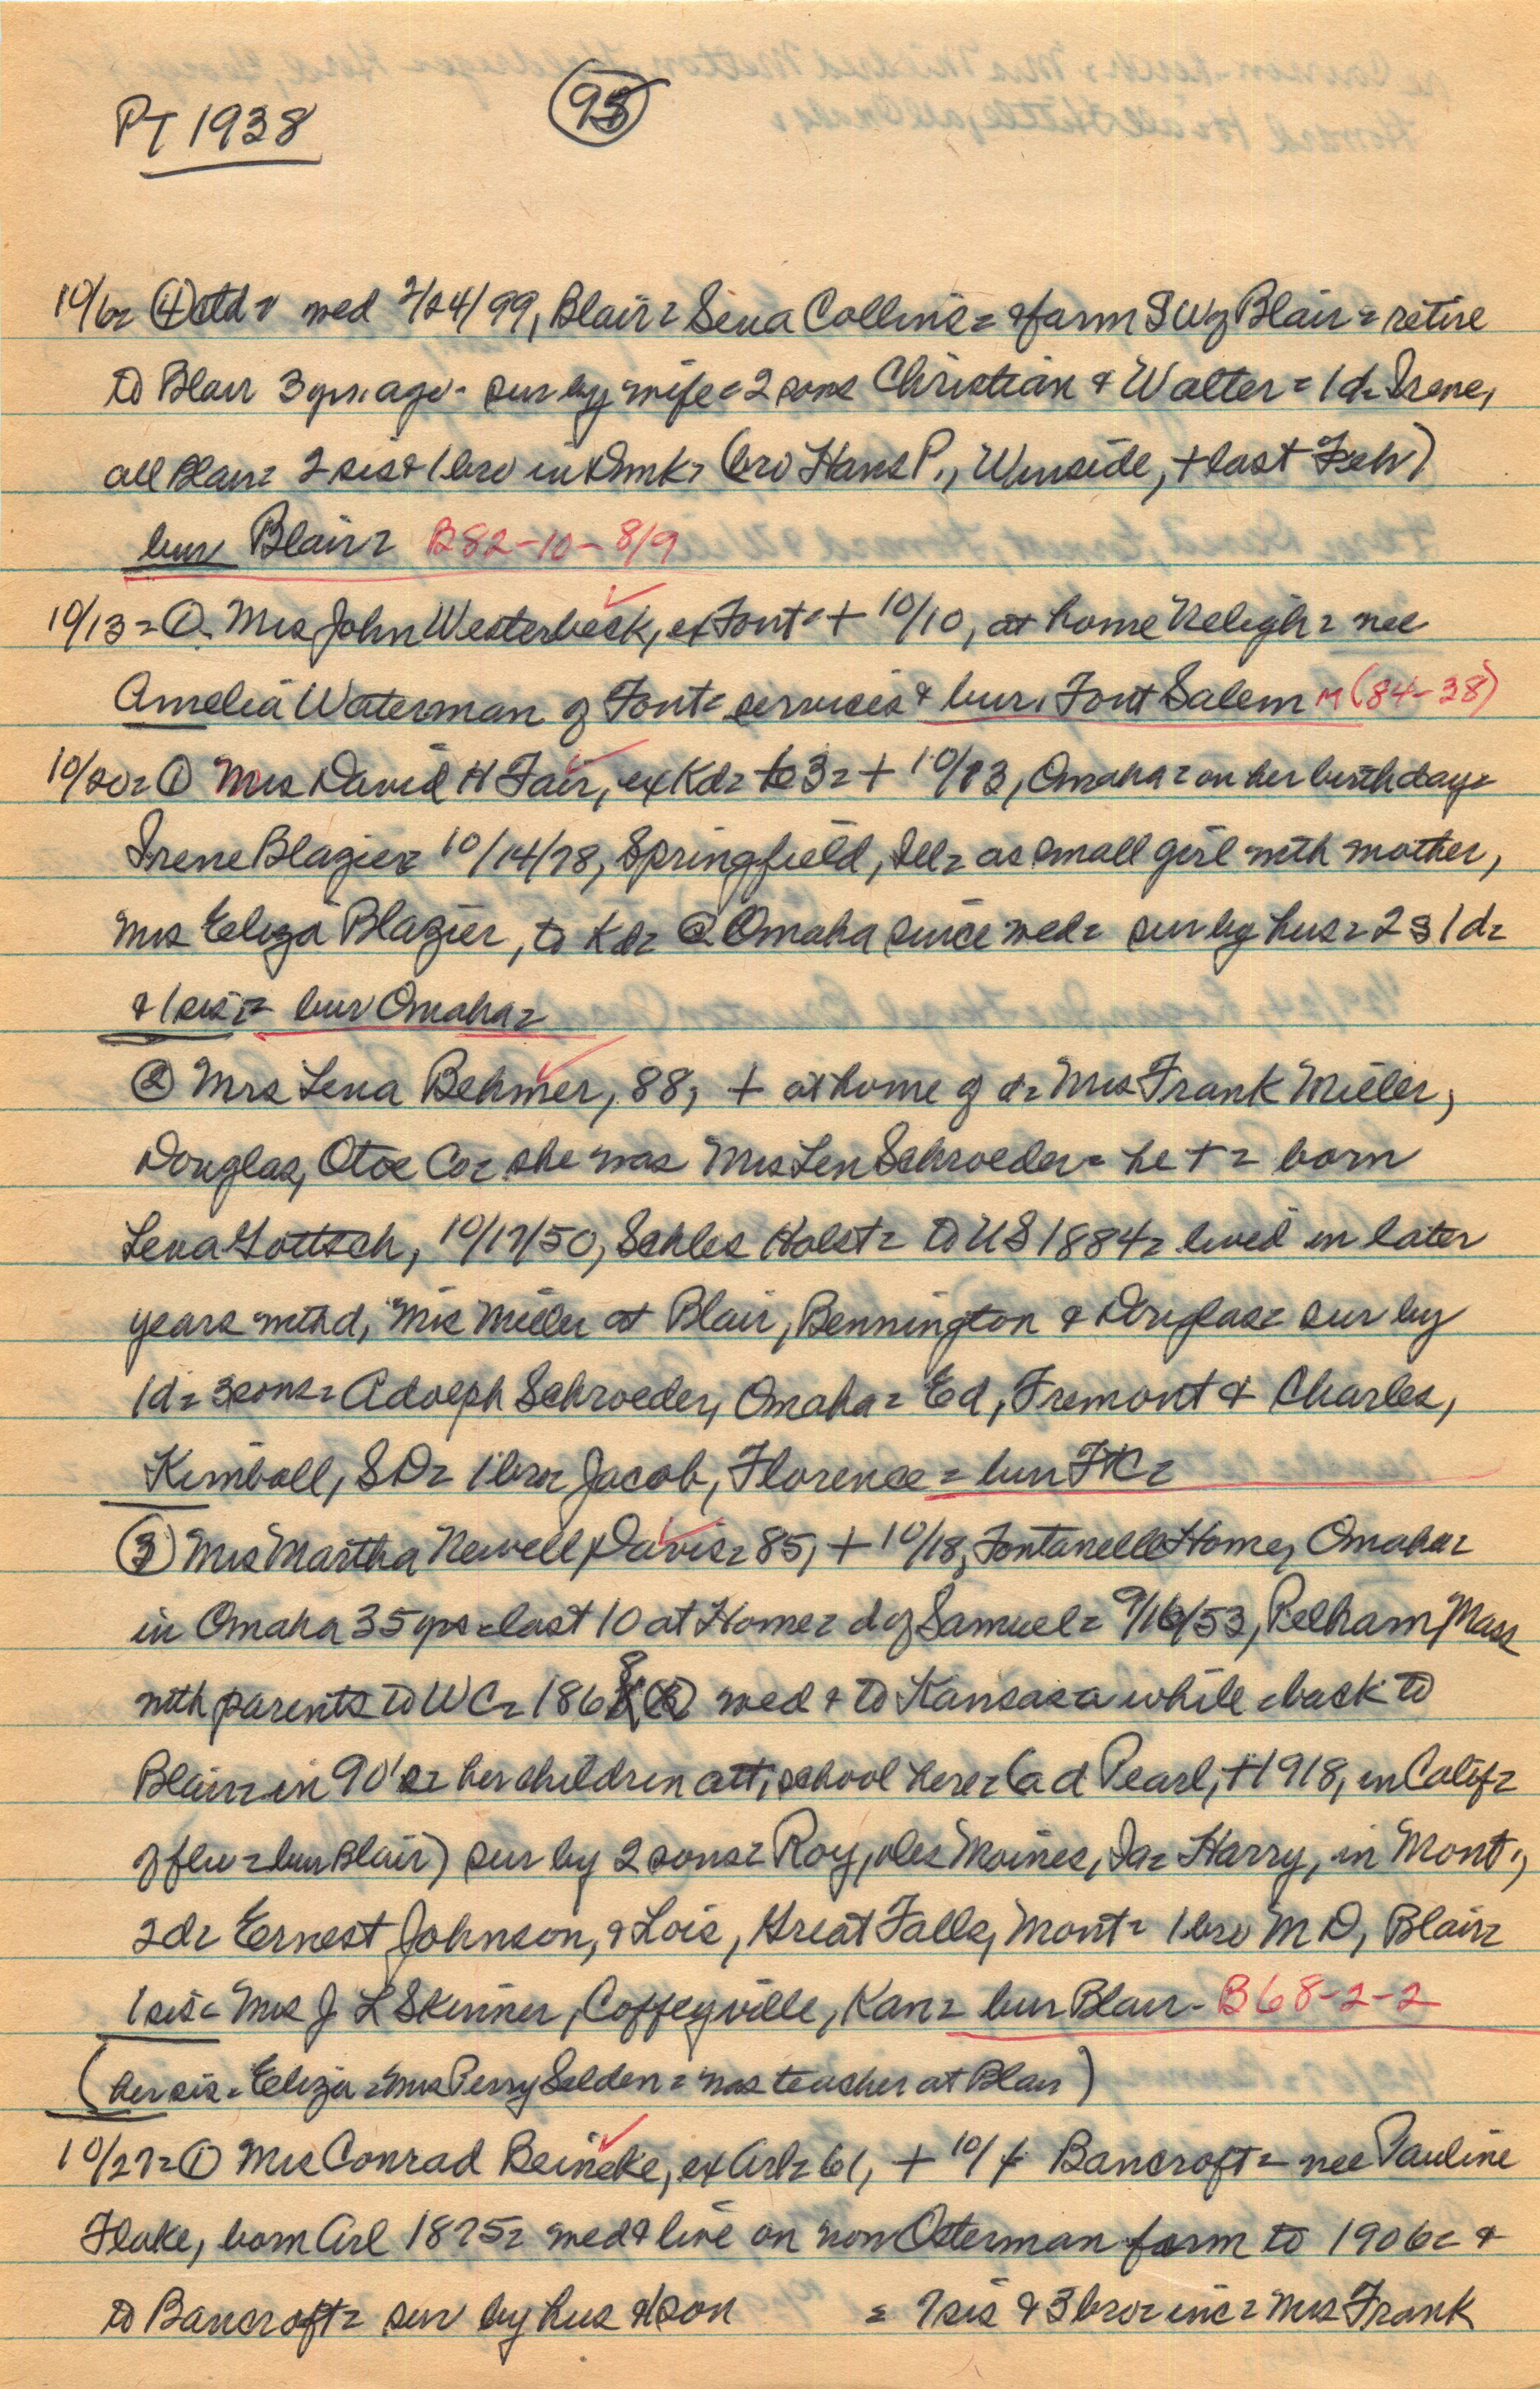 PT 1938
95
10/6= ④ ctd = wed 2/24/99, Blair = Sena Collins = & farm SW of Blair = retire
to Blair 3 yrs. ago - sur by wife = 2 sons Christian & Walter = 1 d = Irene,
all Blair = 2 sis & 1 bro in Dmk = (bro Hans P., Winside, + last Feb)
bur Blair = B82-10-8/9
10/13 = ①. Mrs John Westerbeck, ex Font = + 10/10, at home Neligh = nee
Amelia Waterman of Font = services & bur. Font Salem M (84-38)
10/20 = ① Mrs David H Fair, ex Kd = + 10/13, Omaha = on her birthday =
Irene Blazier = 10/14/78, Springfield, Ill = as small girl with mother,
Mrs Eliza Blazier, to Kd = Omaha since wed = sur by hus = 2 s 1 d =
& 1 sis = bur Omaha =
② Mrs Lena Behmer, 88, + at home of d = Mrs Frank Miller,
Douglas, Otoe Co = she was Mrs Len Schroeder = he + = born
Lena Gottsch, 10/17/50, Schles Holst = to US 1884 = lived in later
years with d, Mrs Miller at Blair, Bennington & Douglas = sur by
1 d = 3 sons = Adolph Schroeder, Omaha = Ed, Fremont & Charles,
Kimball, SD = 1 bro = Jacob, Florence = bur FtC =
③ Mrs Martha Newell Davis = 85, + 10/18, Fontanelle Home, Omaha =
in Omaha 35 yrs = last 10 at Home = d of Samuel = 9/16/53, Pelham, Mass
with parents to WC = 1868 wed & to Kansas a while = back to
Blair = in 90's = her children att, school here = (a d Pearl, + 1918, in Calif =
of flu = bur Blair) sur by 2 sons = Roy, Des Moines, Ia = Harry, in Mont.,
2 d = Ernest Johnson, & Lois, Great Falls, Mont = 1 bro M D, Blair =
1 sis = Mrs J L Skinner, Coffeyville, Kan = bur Blair - B68-2-2
(her sis = Eliza = Mrs Perry Selden = was teacher at Blair)
10/27 = ① Mrs Conrad Beineke, ex Arl = 61, + 10/ Bancroft = nee Pauline
Flake, born Arl 1875 = wed & live on now Osterman farm to 1906 = &
to Bancroft = sur by hus & 1 son = 7 sis & 3 bro = inc = Mrs Frank